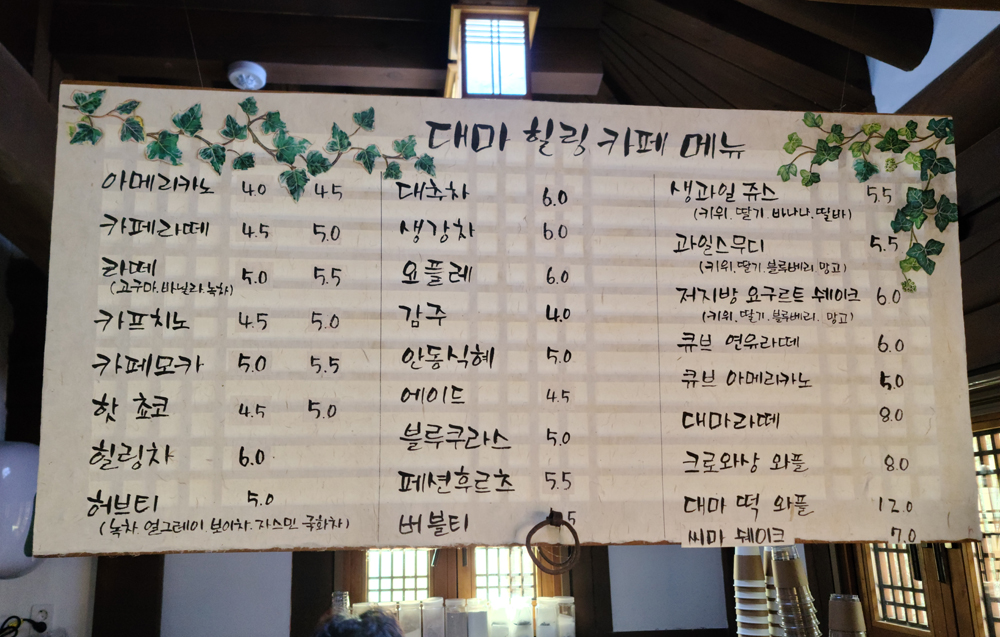 대마 힐링 카페 메뉴
아메리카노 4.0 4.5
카페라떼 4.5 5.0
라떼 5.0 5.5
(고구마.바닐라.녹차)
카프치노 4.5 5.0
카페모카 5.0 5.5
핫 쵸코 4.5 5.0
힐링차 6.0
허브티 5.0
(녹차.얼그레이 보이차.자스민.국화차)
대추차 6.0
생강차 6.0
요플레 6.0
감주 4.0
안동식혜 5.0
에이드 4.5
블루쿠라스 5.0
페션후르츠 5.5
버블티
생과일 쥬스 5.5
(키위.딸기.바나나.딸바)
과일스무디 5.5
(키위.딸기.블루베리.망고)
저지방 요구르트 쉐이크 6.0
(키위.딸기.블루베리.망고)
큐브 연유라떼 6.0
큐브 아메리카노 5.0
대마라떼 8.0
크로와상 와플 8.0
대마 떡 와플 12.0
씨마 쉐이크 7.0